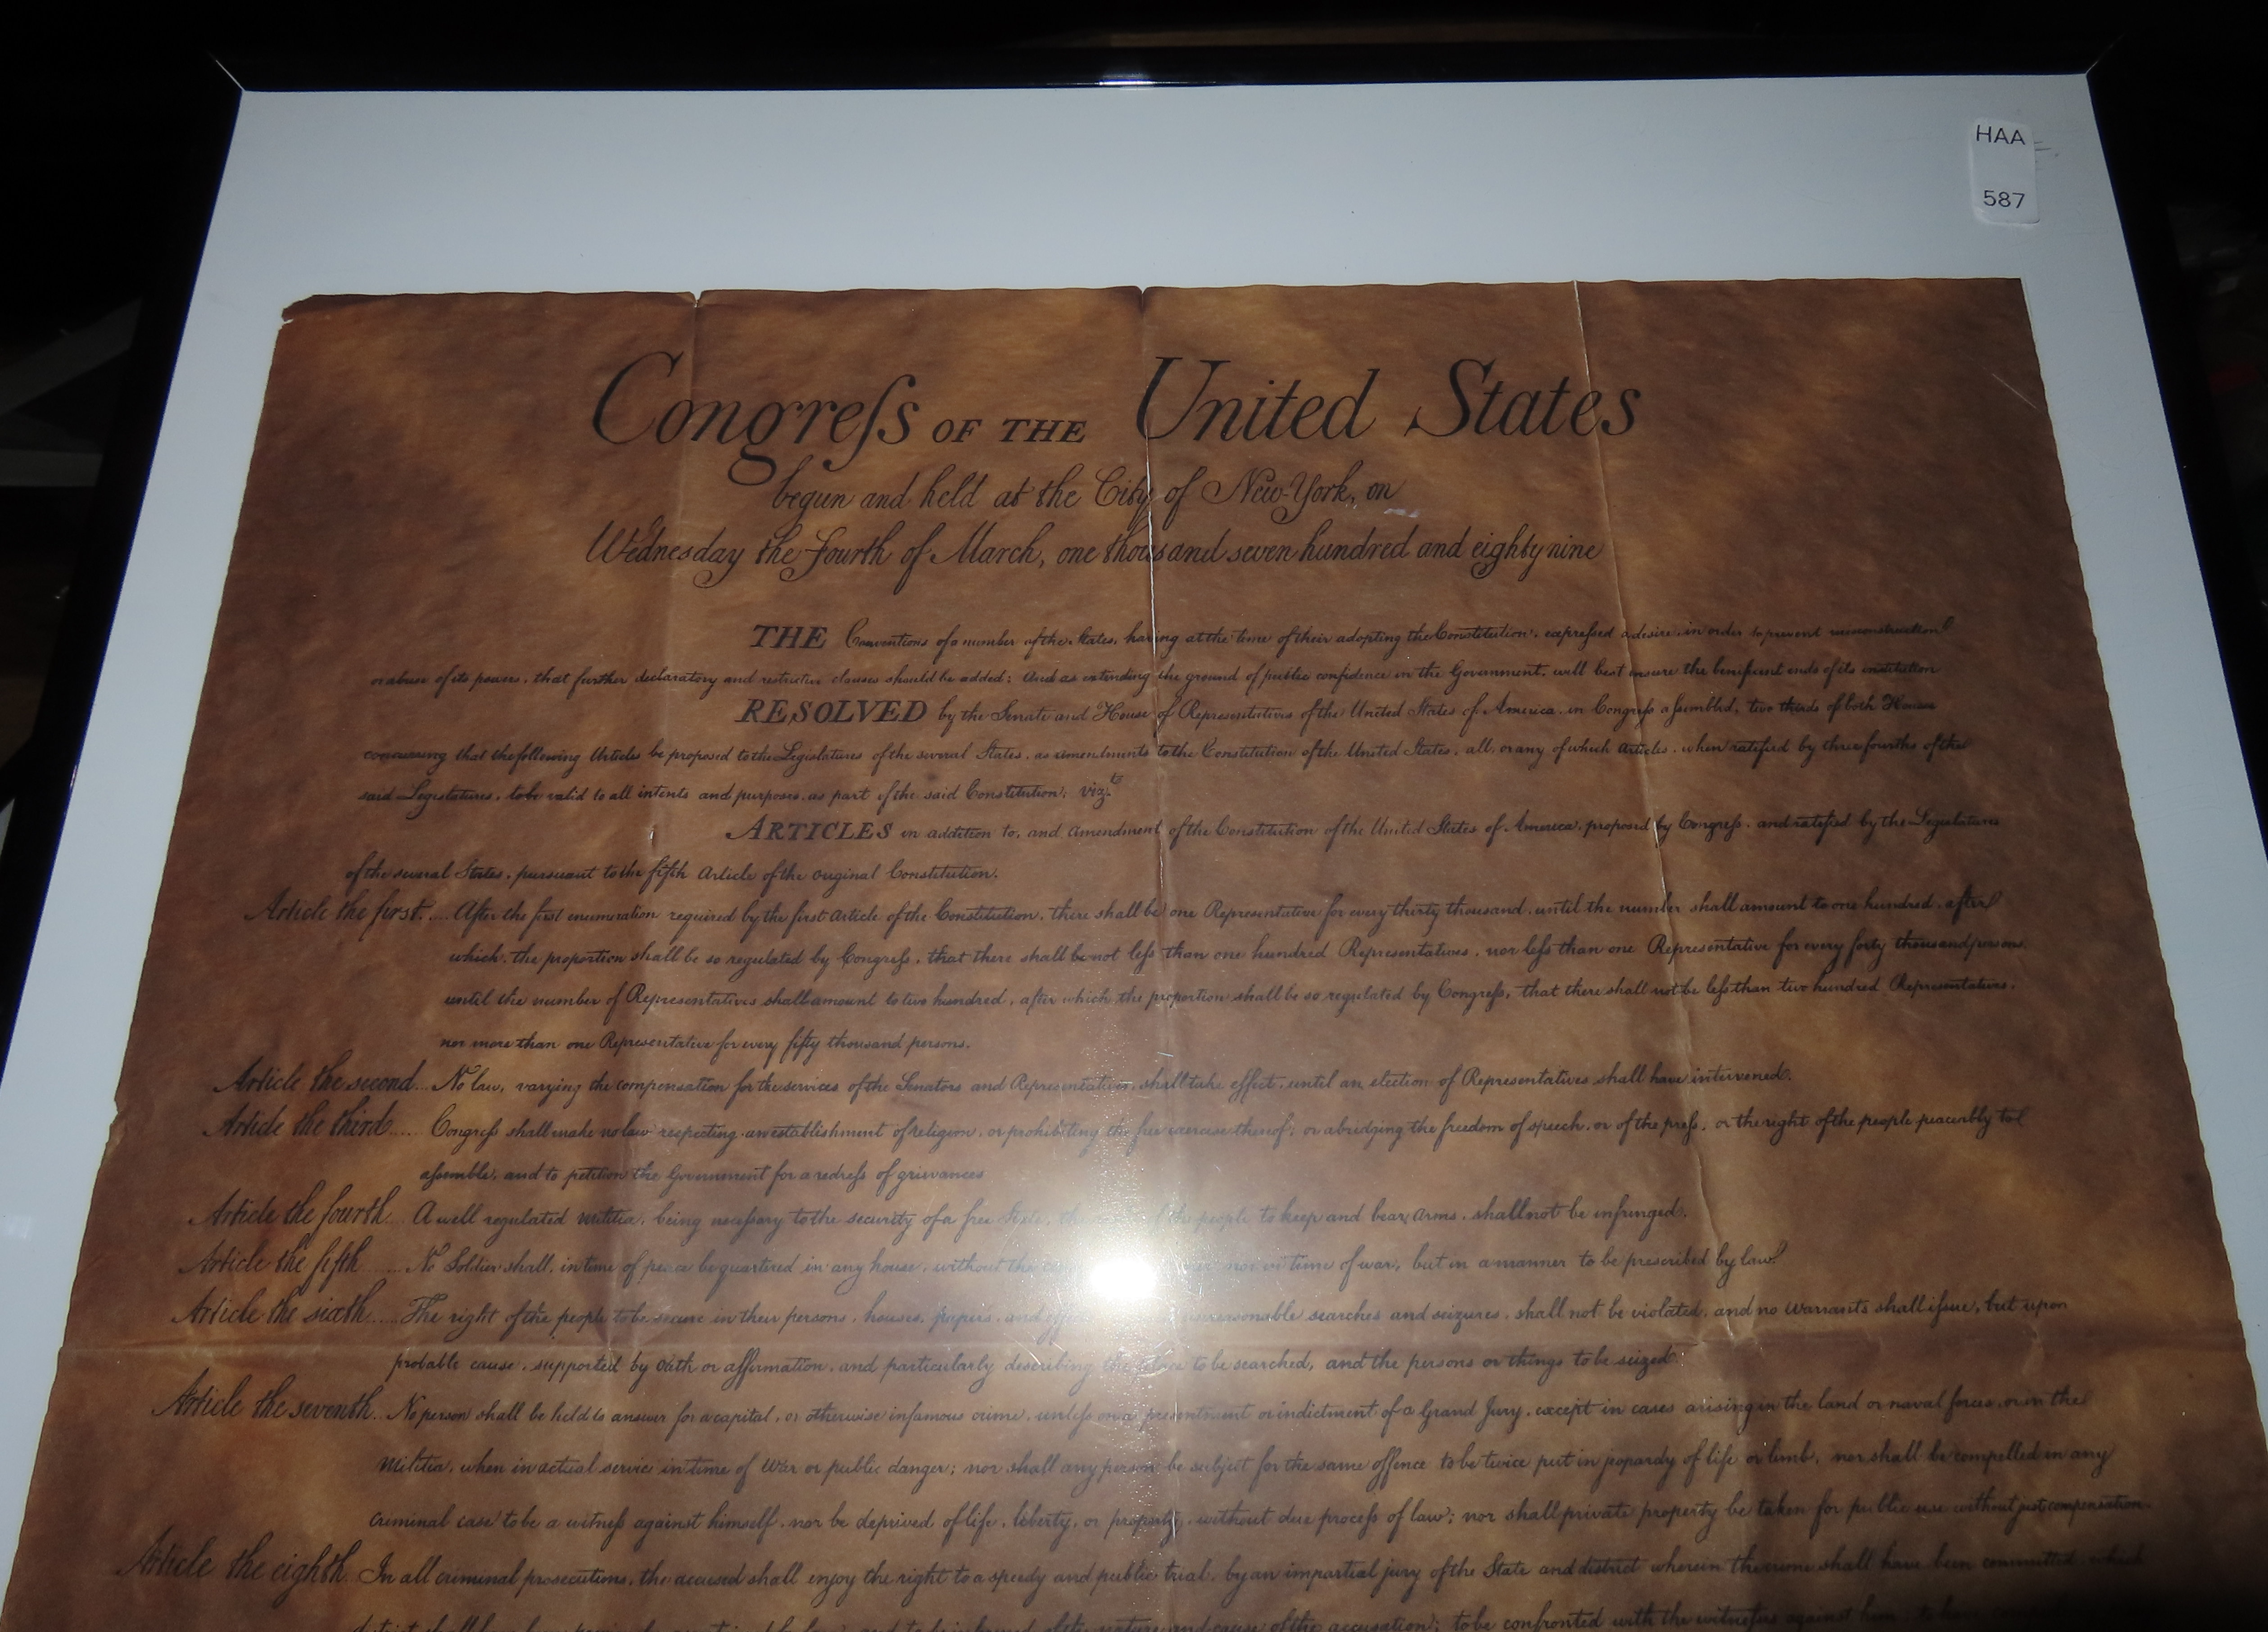 HAA
587
Congreſs OF THE United States
begun and held at the City of New-York, on
Wednesday the fourth of March, one thousand seven hundred and eighty nine
THE Conventions of a number of the States, having at the time of their adopting the Constitution, expreſsed a desire, in order to prevent misconstruction
or abuse of its powers, that further declaratory and restrictive clauses should be added: And as extending the ground of public confidence in the Government, will best ensure the beneficent ends of its institution
RESOLVED by the Senate and House of Representatives of the United States of America, in Congreſs aſsembled, two thirds of both Houses
concurring that the following Articles be proposed to the Legislatures of the several States, as amendments to the Constitution of the United States, all, or any of which Articles, when ratified by three fourths of the
said Legislatures, to be valid to all intents and purposes, as part of the said Constitution; vizt.
ARTICLES in addition to, and Amendment of the Constitution of the United States of America, proposed by Congreſs, and ratified by the Legislatures
of the several States, pursuant to the fifth Article of the original Constitution.
Article the first.... After the first enumeration required by the first Article of the Constitution, there shall be one Representative for every thirty thousand, until the number shall amount to one hundred, after
which, the proportion shall be so regulated by Congreſs, that there shall be not leſs than one hundred Representatives, nor leſs than one Representative for every forty thousand persons,
until the number of Representatives shall amount to two hundred, after which the proportion shall be so regulated by Congreſs, that there shall not be leſs than two hundred Representatives,
nor more than one Representative for every fifty thousand persons.
Article the second... No law, varying the compensation for the services of the Senators and Representatives, shall take effect, until an election of Representatives shall have intervened.
Article the third..... Congreſs shall make no law respecting an establishment of religion, or prohibiting the free exercise thereof; or abridging the freedom of speech, or of the preſs, or the right of the people peaceably to
aſsemble, and to petition the Government for a redreſs of grievances
Article the fourth.. A well regulated militia, being neceſsary to the security of a free State, the people to keep and bear arms, shall not be infringed.
Article the fifth ....... No Soldier shall, in time of peace be quartered in any house, without the nor in time of war, but in a manner to be prescribed by law.
Article the sixth...... The right of the people to be secure in their persons, houses, papers, and unreasonable searches and seizures, shall not be violated, and no warrants shall iſsue, but upon
probable cause, supported by oath or affirmation, and particularly describing the place to be searched, and the persons or things to be seized.
Article the seventh.. No person shall be held to answer for a capital, or otherwise infamous crime, unleſs on a presentment or indictment of a Grand Jury, except in cases arising in the land or naval forces, or in the
Militia, when in actual service in time of War or public danger; nor shall any person be subject for the same offence to be twice put in jeopardy of life or limb, nor shall be compelled in any
criminal case to be a witneſs against himself, nor be deprived of life, liberty, or property, without due proceſs of law; nor shall private property be taken for public use without just compensation.
Article the eighth. In all criminal prosecutions, the accused shall enjoy the right to a speedy and public trial, by an impartial jury of the State and district wherein the crime shall have been committed, which
district shall have been and cause of the accusation; to be confronted with the witneſses against him;